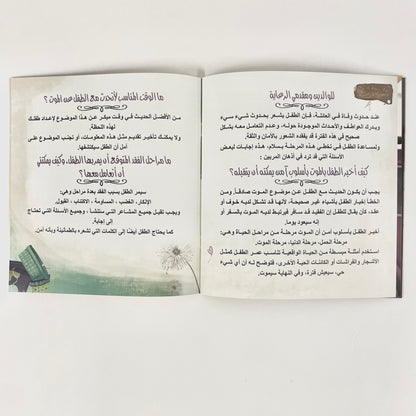 للوالدين ومقدمي الرعاية
عند حدوث وفاة في العائلة، فإن الطفل يشعر بحدوث شيء سيء
ويدرك العواطف والأحداث الموجودة حوله، وعدم التعامل معه بشكل
صحيح في هذه الفترة قد يفقده الشعور بالأمان والثقة.
ولمساعدة الطفل في تخطي هذه المرحلة بسلام، هذه إجابات لبعض
الأسئلة التي قد ترد في أذهان المربين :
كيف أخبر الطفل بالموت بأسلوب آمن يمكنه أن يتقبله؟
يجب أن يكون الحديث مع الطفل عن موضوع الموت صادقاً، ومن
الخطأ إخبار الطفل بأشياء غير صحيحة، لأنها قد تشكل لديه خوف أو
عند، كأن يقال للطفل إن الفقيد قد سافر فيرتبط لديه الموت بالسفر أو
إنه سيعود يوما.
أخبر الطفل بأسلوب آمن أن الموت مرحلة من مراحل الحياة وهي:
مرحلة الحمل، مرحلة الدنيا، مرحلة الموت.
استخدم أمثلة مبسطة من الحياة الواقعية تناسب عمر الطفل كمثل
الأشجار والفراشات أو الكائنات الحية الأخرى، فتوضح له أن أي شيء
حي، سيعيش فترة، وفي النهاية سيموت.
ما الوقت المناسب لأتحدث مع الطفل عن الموت ؟
من الأفضل الحديث في وقت مبكر عن هذا الموضوع لإعداد طفلك
لهذه اللحظة.
ولا يمكنك تأخير تقديم مثل هذه المعلومات، أو تجنب الموضوع على
أمل أن الطفل سيكتشفها.
ما مراحل الفقد المتوقع أن يمر بها الطفل، وكيف يمكنني
أن أتعامل معها؟
سيمر الطفل بسبب الفقد بعدة مراحل وهي:
الإنكار ، الغضب ، المساومة ، الاكتئاب ، القبول.
ويجب تقبل جميع المشاعر التي ستنشأ ، وجميع الأسئلة التي تحتاج
إلى إجابة.
كما يحتاج الطفل أيضاً إلى الكلمات التي تشعره بالطمأنينة وبأنه آمن.